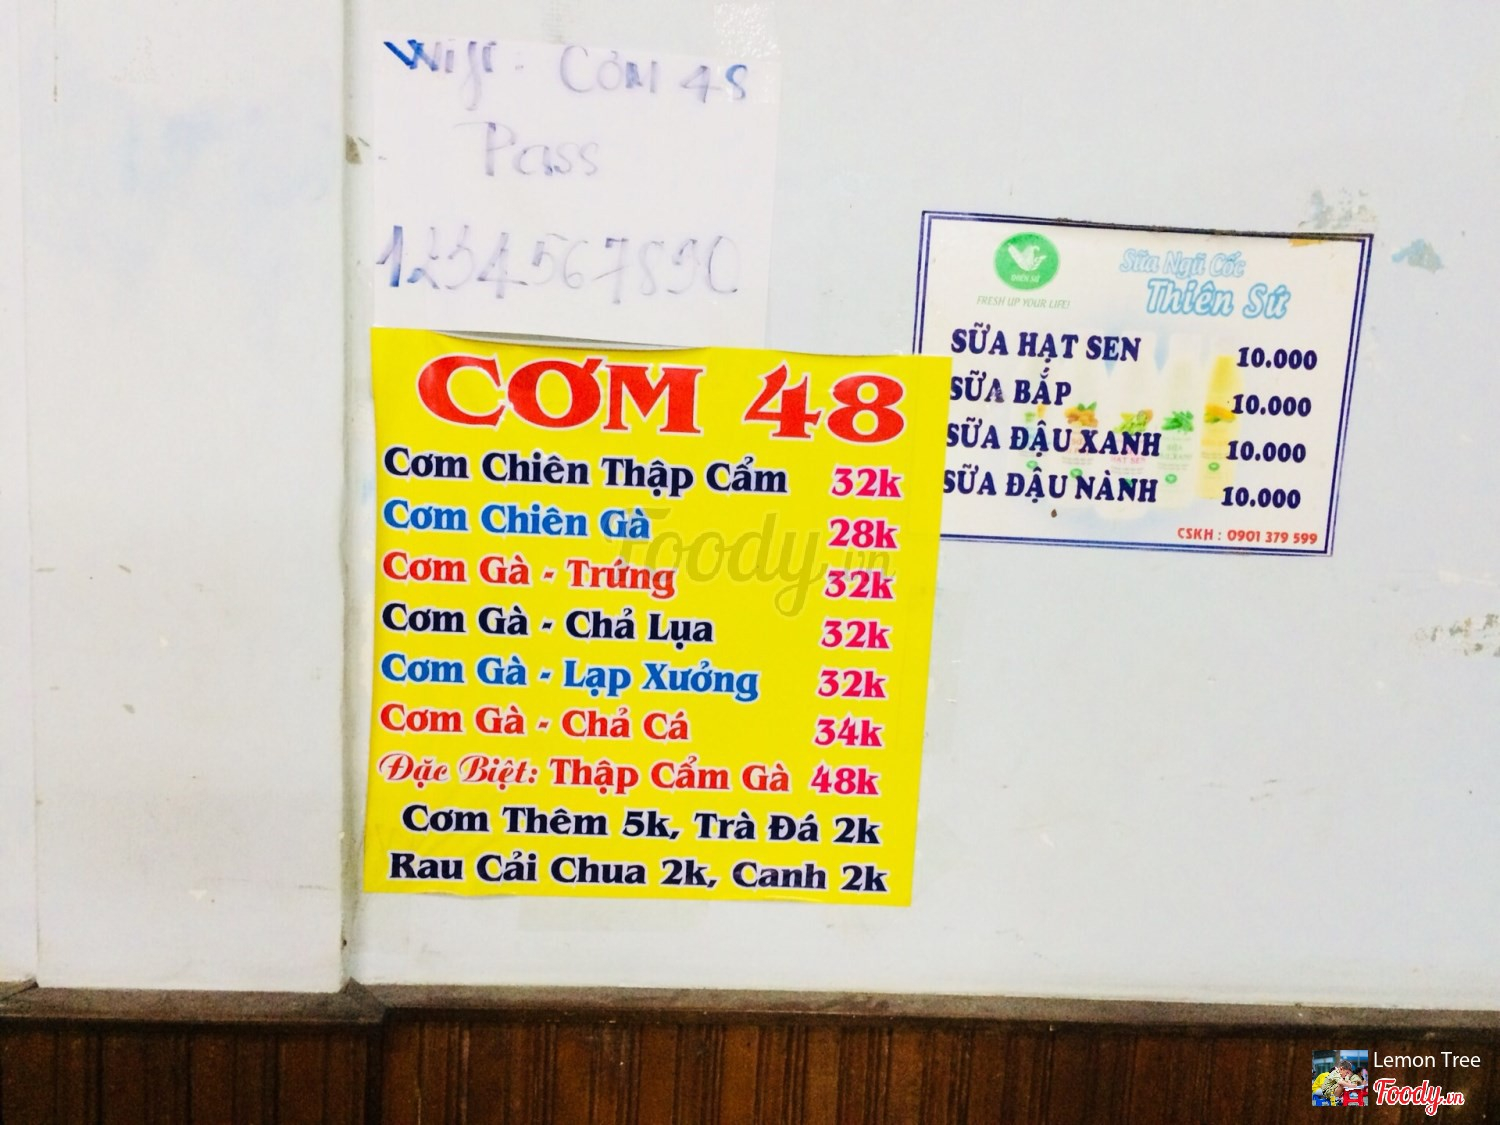 Wifi - CƠM 48
Pass
1234567890
CƠM 48
Cơm Chiên Thập Cẩm 32k
Cơm Chiên Gà 28k
Cơm Gà - Trứng 32k
Cơm Gà - Chả Lụa 32k
Cơm Gà - Lạp Xưởng 32k
Cơm Gà - Chả Cá 34k
Đặc Biệt: Thập Cẩm Gà 48k
Cơm Thêm 5k, Trà Đá 2k
Rau Cải Chua 2k, Canh 2k
THIÊN SỨ
FRESH UP YOUR LIFE!
Sữa Ngũ Cốc
Thiên Sứ
SỮA HẠT SEN 10.000
SỮA BẮP 10.000
SỮA ĐẬU XANH 10.000
SỮA ĐẬU NÀNH 10.000
CSKH : 0901 379 599
Foody.vn
Lemon Tree
Foody.vn